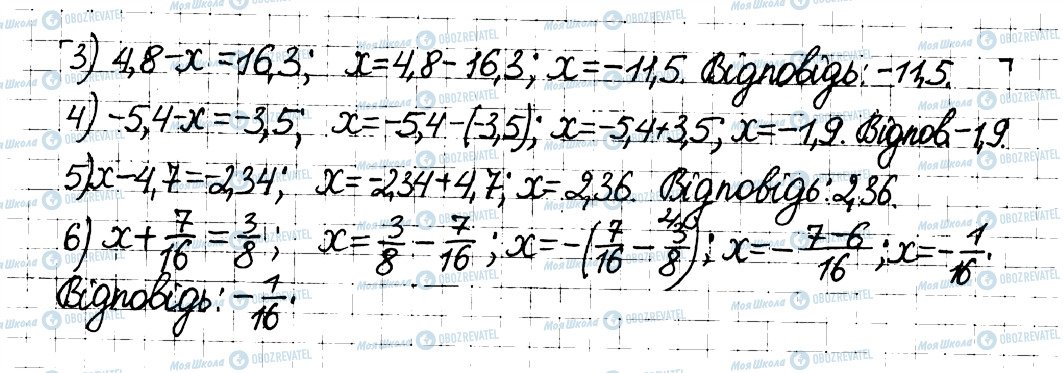 3) 4,8-x=16,3; x=4,8-16,3; x=-11,5. Відповідь: -11,5.
4) -5,4-x=-3,5; x=-5,4-(-3,5); x=-5,4+3,5; x=-1,9. Відпов.-1,9.
5)x-4,7=-2,34; x=-2,34+4,7; x=2,36. Відповідь: 2,36.
6) x+7/16=3/8; x=3/8-7/16; x=-(7/16-3/8); x=-(7-6)/16; x=-1/16.
Відповідь: -1/16.